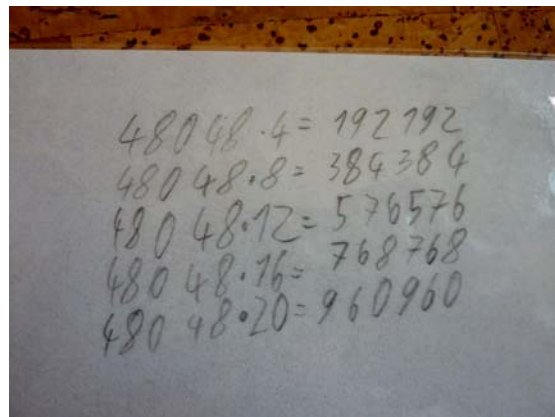 48048·4=192192
48048·8=384384
48048·12=576576
48048·16=768768
48048·20=960960